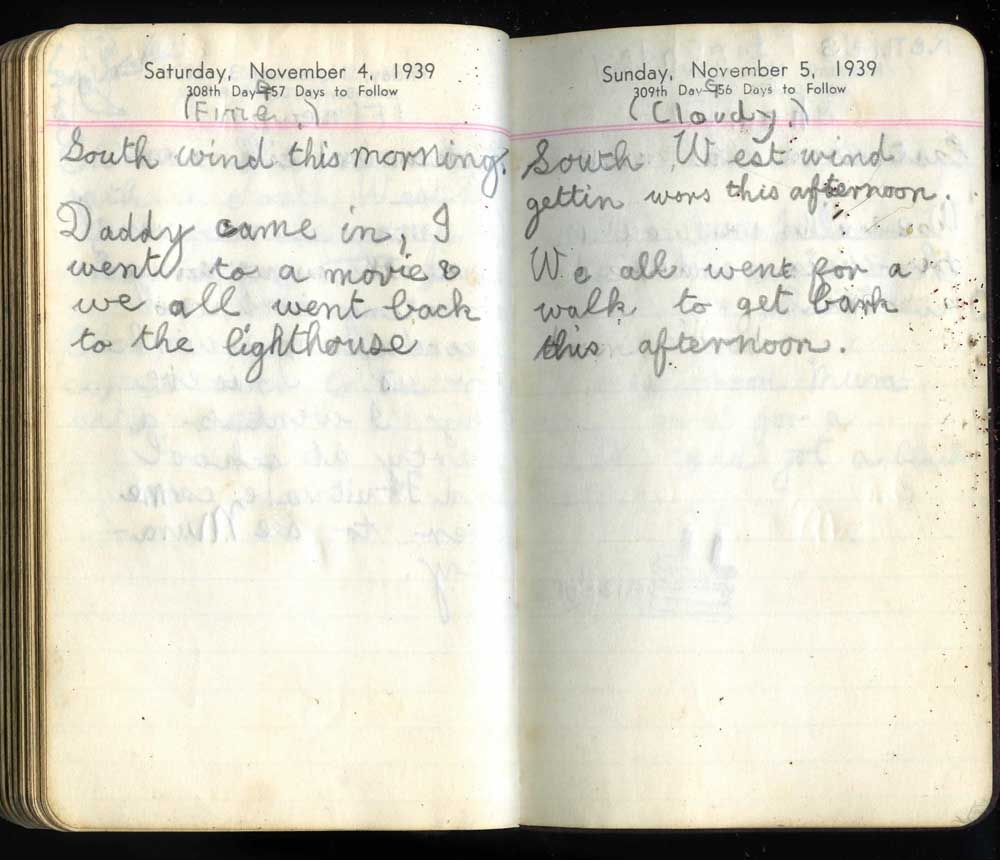 Saturday, November 4, 1939
308th Day-57 Days to Follow
(Fine.)
South wind this morning.
Daddy came in, I
went to a movie &
we all went back
to the lighthouse
Sunday, November 5, 1939
309th Day-56 Days to Follow
(Cloudy.)
South West wind
gettin wors this afternoon.
We all went for a
walk to get bark
this afternoon.